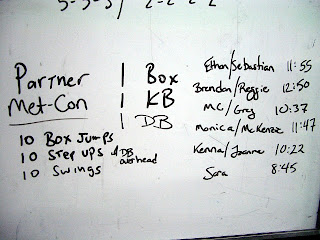 5-5-5 / 2-2-2-2
Partner
Met-Con
1 Box
1 KB
1 DB
10 Box Jumps
10 Step ups w/ DB overhead
10 Swings
Ethan/Sebastian 11:55
Brendan/Reggie 12:50
MC/Greg 10:37
Monica/McKenzie 11:47
Kenna/Joanne 10:22
Sara 8:45